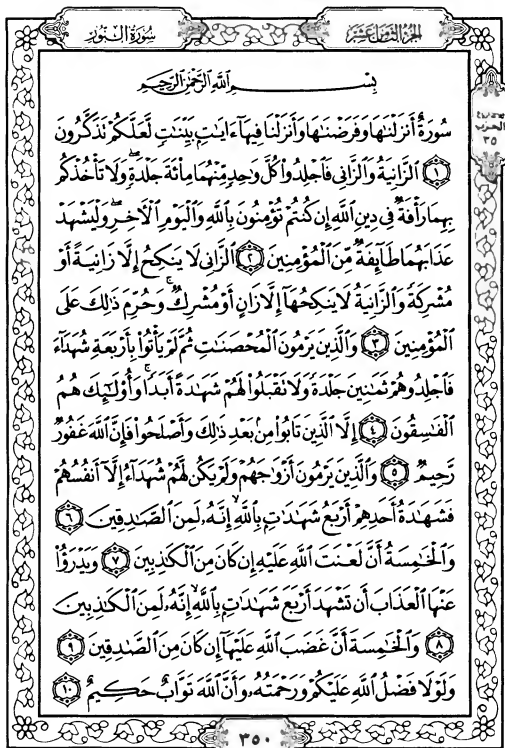 سُورَةُ النُّورِ
الجُزْءُ الثَّامِنَ عَشَرَ
بِسْمِ اللَّهِ الرَّحْمَٰنِ الرَّحِيمِ
سُورَةٌ أَنزَلْنَٰهَا وَفَرَضْنَٰهَا وَأَنزَلْنَا فِيهَآ ءَايَٰتٍۭ بَيِّنَٰتٍ لَّعَلَّكُمْ تَذَكَّرُونَ
الحزب
٣٥
﴿١﴾ ٱلزَّانِيَةُ وَٱلزَّانِى فَٱجْلِدُوا۟ كُلَّ وَٰحِدٍ مِّنْهُمَا مِا۟ئَةَ جَلْدَةٍ ۖ وَلَا تَأْخُذْكُم
بِهِمَا رَأْفَةٌ فِى دِينِ ٱللَّهِ إِن كُنتُمْ تُؤْمِنُونَ بِٱللَّهِ وَٱلْيَوْمِ ٱلْءَاخِرِ ۖ وَلْيَشْهَدْ
عَذَابَهُمَا طَآئِفَةٌ مِّنَ ٱلْمُؤْمِنِينَ ﴿٢﴾ ٱلزَّانِى لَا يَنكِحُ إِلَّا زَانِيَةً أَوْ
مُشْرِكَةً وَٱلزَّانِيَةُ لَا يَنكِحُهَآ إِلَّا زَانٍ أَوْ مُشْرِكٌ ۚ وَحُرِّمَ ذَٰلِكَ عَلَى
ٱلْمُؤْمِنِينَ ﴿٣﴾ وَٱلَّذِينَ يَرْمُونَ ٱلْمُحْصَنَٰتِ ثُمَّ لَمْ يَأْتُوا۟ بِأَرْبَعَةِ شُهَدَآءَ
فَٱجْلِدُوهُمْ ثَمَٰنِينَ جَلْدَةً وَلَا تَقْبَلُوا۟ لَهُمْ شَهَٰدَةً أَبَدًا ۚ وَأُو۟لَٰٓئِكَ هُمُ
ٱلْفَٰسِقُونَ ﴿٤﴾ إِلَّا ٱلَّذِينَ تَابُوا۟ مِنۢ بَعْدِ ذَٰلِكَ وَأَصْلَحُوا۟ فَإِنَّ ٱللَّهَ غَفُورٌ
رَّحِيمٌ ﴿٥﴾ وَٱلَّذِينَ يَرْمُونَ أَزْوَٰجَهُمْ وَلَمْ يَكُن لَّهُمْ شُهَدَآءُ إِلَّآ أَنفُسُهُمْ
فَشَهَٰدَةُ أَحَدِهِمْ أَرْبَعُ شَهَٰدَٰتٍۭ بِٱللَّهِ ۙ إِنَّهُۥ لَمِنَ ٱلصَّٰدِقِينَ ﴿٦﴾
وَٱلْخَٰمِسَةُ أَنَّ لَعْنَتَ ٱللَّهِ عَلَيْهِ إِن كَانَ مِنَ ٱلْكَٰذِبِينَ ﴿٧﴾ وَيَدْرَؤُا۟
عَنْهَا ٱلْعَذَابَ أَن تَشْهَدَ أَرْبَعَ شَهَٰدَٰتٍۭ بِٱللَّهِ ۙ إِنَّهُۥ لَمِنَ ٱلْكَٰذِبِينَ
﴿٨﴾ وَٱلْخَٰمِسَةَ أَنَّ غَضَبَ ٱللَّهِ عَلَيْهَآ إِن كَانَ مِنَ ٱلصَّٰدِقِينَ ﴿٩﴾
وَلَوْلَا فَضْلُ ٱللَّهِ عَلَيْكُمْ وَرَحْمَتُهُۥ وَأَنَّ ٱللَّهَ تَوَّابٌ حَكِيمٌ ﴿١٠﴾
٣٥٠